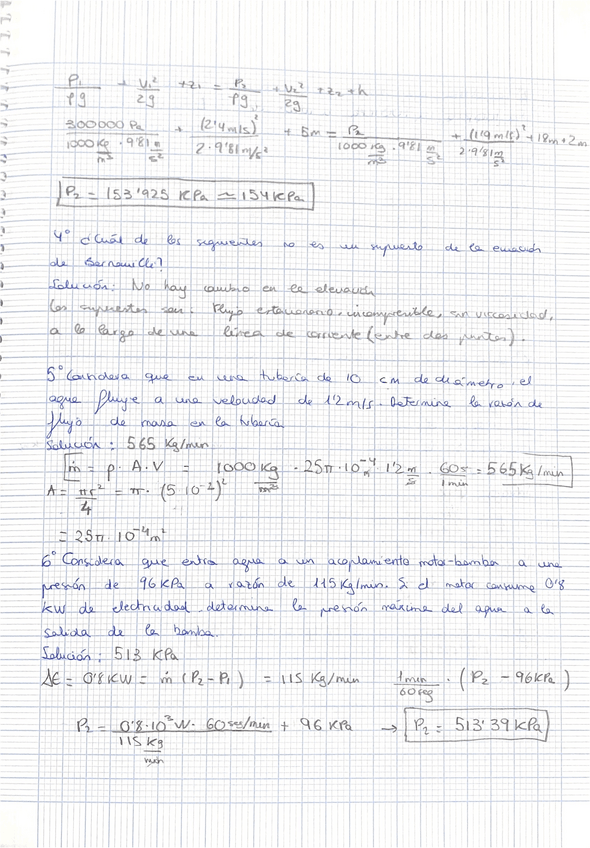 P₁/ρg + V₁²/2g + z₁ = P₂/ρg + V₂²/2g + z₂ + h
300000 Pa/(1000 kg/m³ · 9'81 m/s²) + (2'4 m/s)²/(2·9'81 m/s²) + 5m = P₂/(1000 kg/m³ · 9'81 m/s²) + (1'9 m/s)²/(2·9'81 m/s²) + 18m + 2m
P₂ = 153'925 KPa ≃ 154 KPa
4º ¿Cuál de los siguientes no es un supuesto de la ecuación
de Bernouille?
Solución: No hay cambio en la elevación
Los supuestos son: Flujo estacionario, incompresible, sin viscosidad,
a lo largo de una línea de corriente (entre dos puntos).
5º Considera que en una tubería de 10 cm de diámetro, el
agua fluye a una velocidad de 1'2 m/s. Determine la razón de
flujo de masa en la tubería
Solución: 565 Kg/min
ṁ = ρ · A · V = 1000 kg/m³ · 25π·10⁻⁴ m · 1'2 m/s · 60s/1min = 565 kg/min
A = πr²/4 = π · (5·10⁻²)²
= 25π·10⁻⁴ m²
6º Considera que entra agua a un acoplamiento motor-bomba a una
presión de 96 KPa a razón de 115 Kg/min. Si el motor consume 0'8
KW de electricidad, determina la presión máxima del agua a la
salida de la bomba.
Solución: 513 KPa
ΔE = 0'8 KW = ṁ (P₂ - P₁) = 115 Kg/min 1min/60seg · (P₂ - 96 KPa)
P₂ = 0'8·10³ W · 60 seg/min / 115 Kg/min + 96 KPa → P₂ = 513'39 KPa